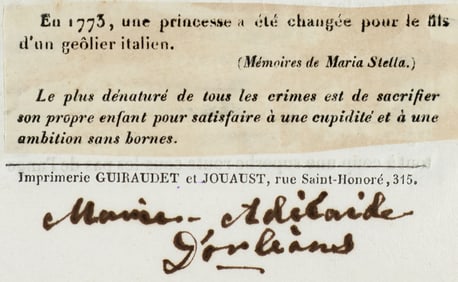 En 1773, une princesse a été changée pour le fils
d'un geôlier italien.
(Mémoires de Maria Stella.)
Le plus dénaturé de tous les crimes est de sacrifier
son propre enfant pour satisfaire à une cupidité et à une
ambition sans bornes.
Imprimerie GUIRAUDET et JOUAUST, rue Saint-Honoré, 315.
Marie-Adélaide
D'orléans